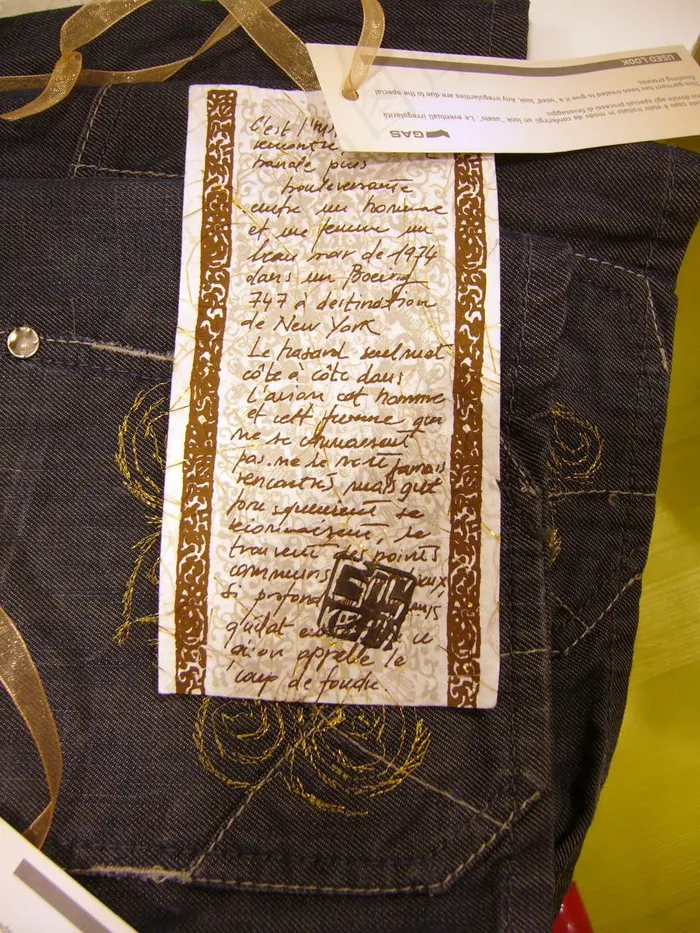 USED LOOK
This garment has been treated to give it a 'used' look. Any irregularities are due to the special
washing process.
capo è stato trattato in modo da conferirgli un look 'usato'. Le eventuali irregolarità
no dovute agli speciali processi di lavaggio.
GAS
C'est l'
rencontre
banale puis
bouleversante
entre un homme
et une femme un
beau soir de 1974
dans un Boeing
747 à destination
de New York
Le hasard seul met
côte à côte dans
l'avion cet homme
et cette femme qui
ne se connaissent
pas. ne se sont jamais
rencontrés mais qui
se
reconnaissent, se
trouvent des points
communs
si profonds
qu'il
qu'on appelle le
coup de foudre.